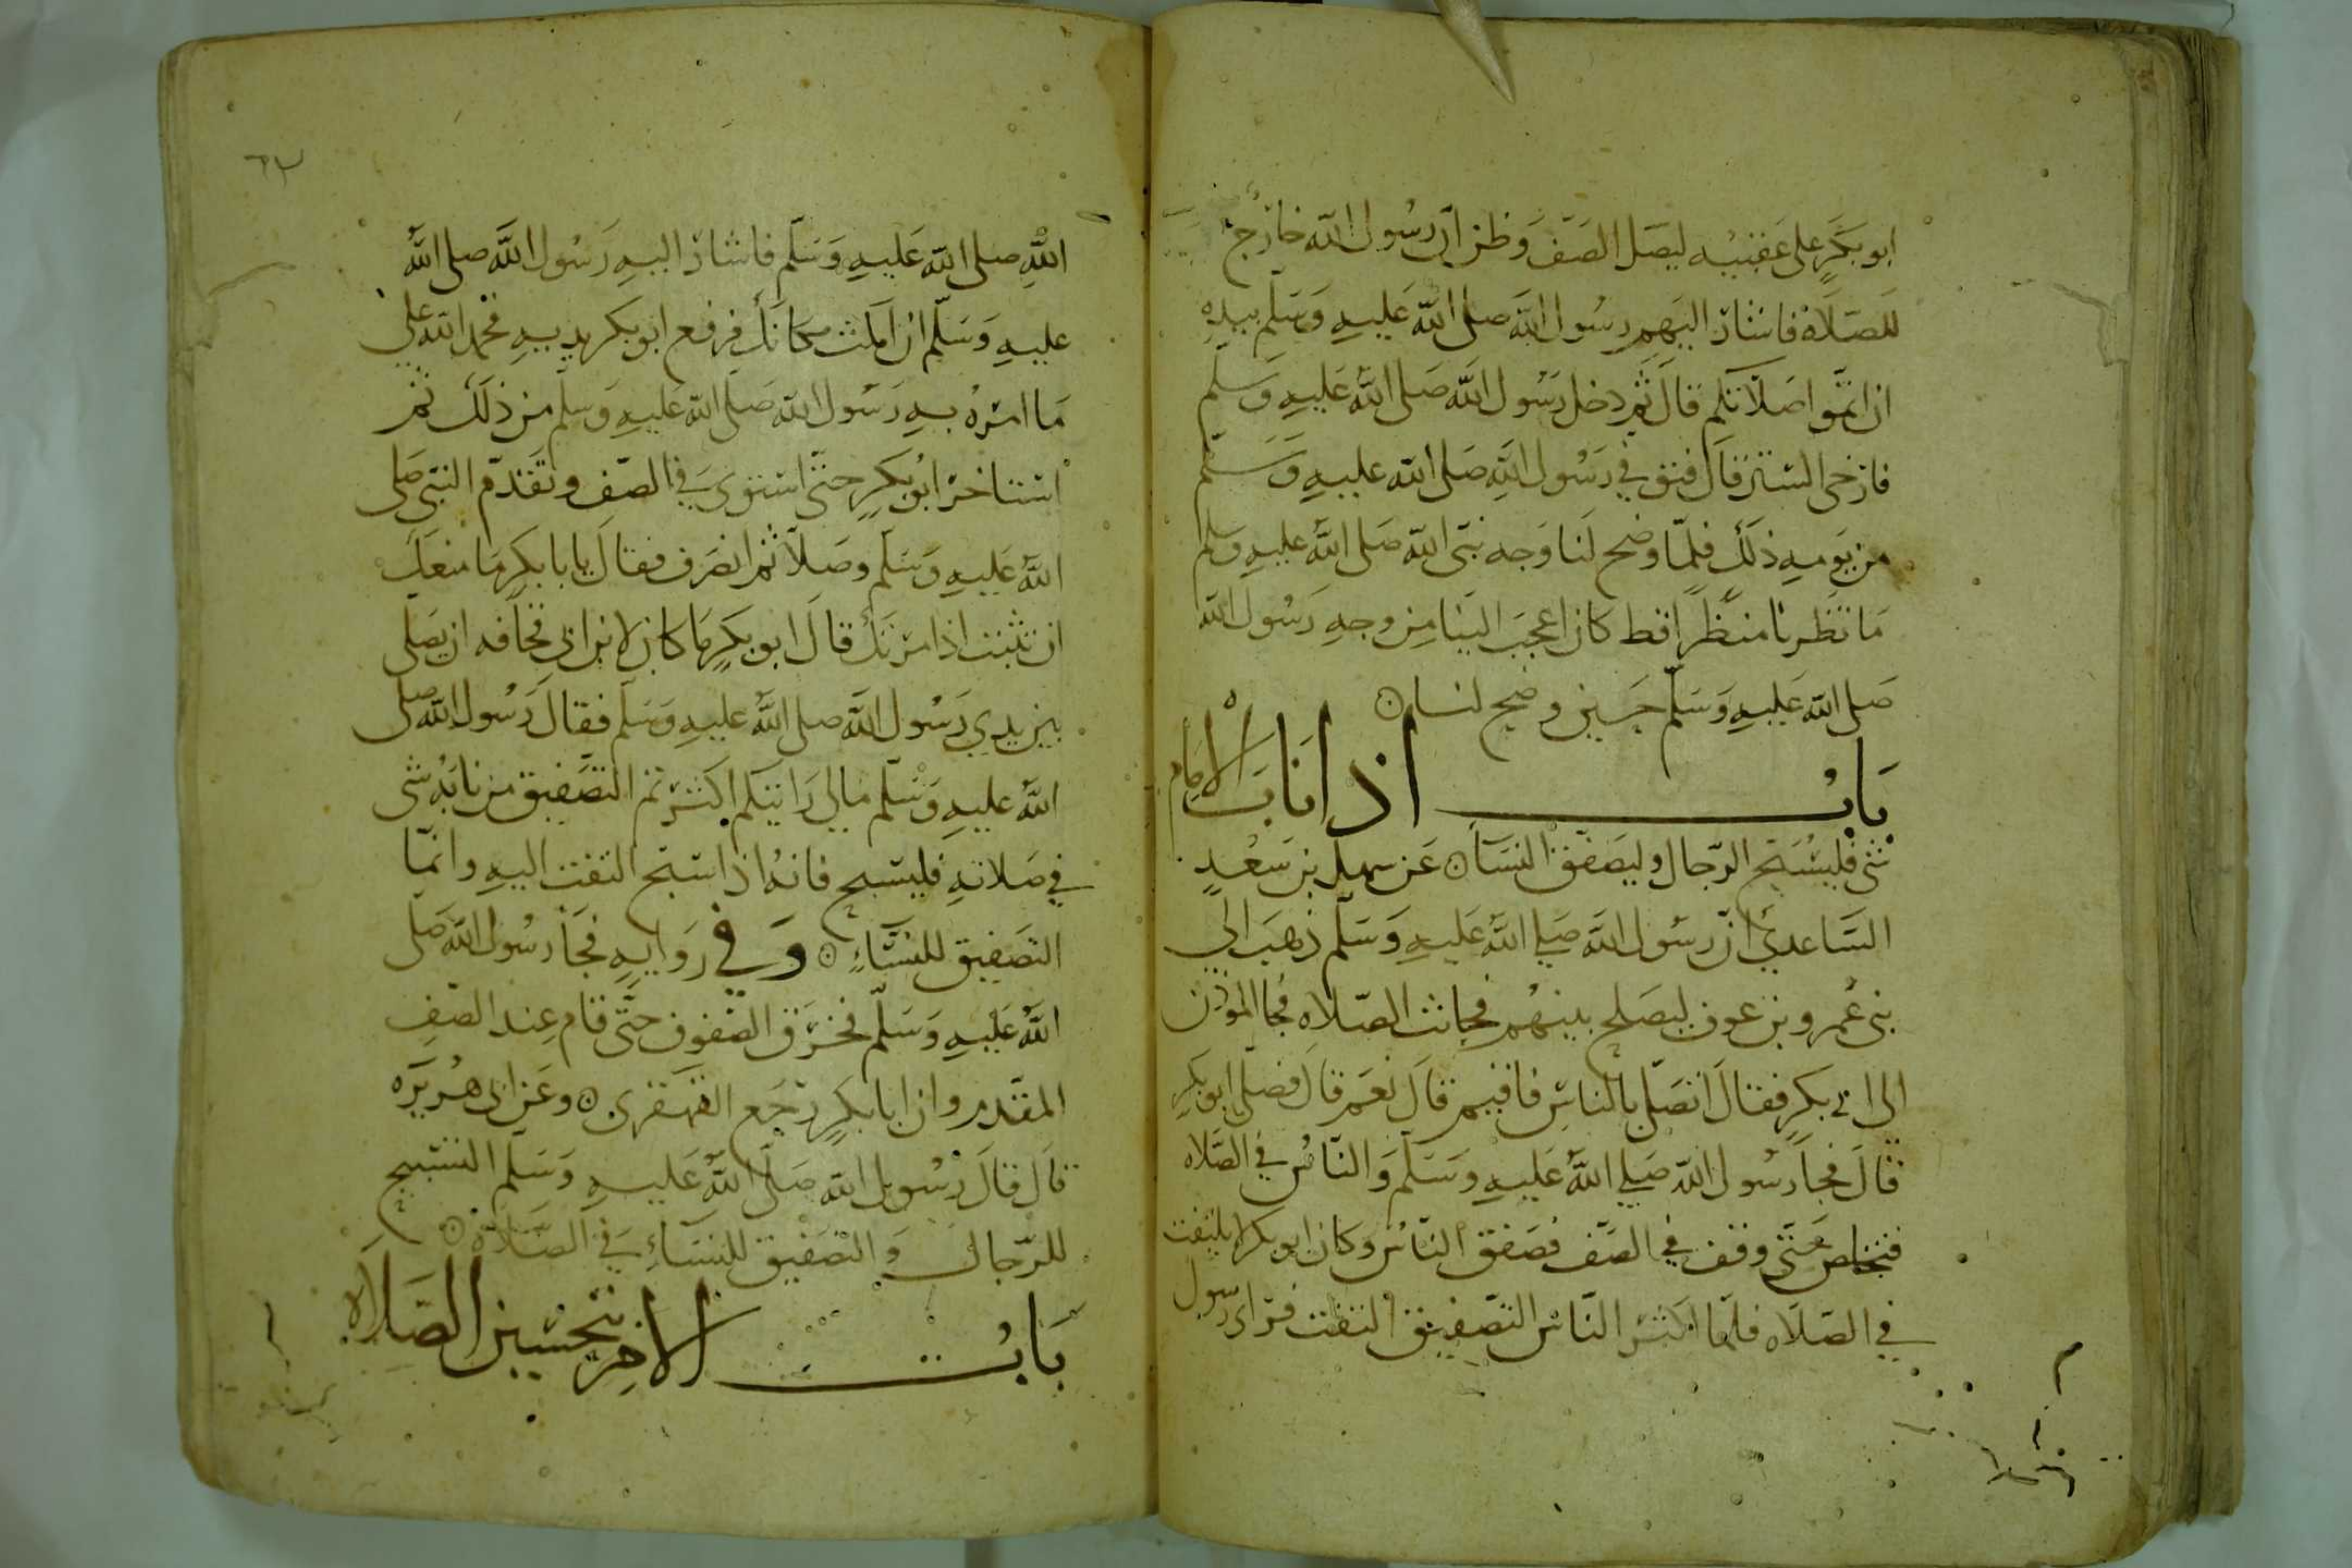 ابو بكرٍ على عقبيه ليصل الصف وظن ان رسول الله خارج
للصلاة فاشار اليهم رسول الله صلى الله عليه وسلم بيده
ان اتموا صلاتكم قال ثم دخل رسول الله صلى الله عليه وسلم
فارخى الستر قال فتوفي رسول الله صلى الله عليه وسلم
من يومه ذلك فلما وضح لنا وجه نبي الله صلى الله عليه وسلم
ما نظرنا منظرا قط كان اعجب الينا من وجه رسول الله
صلى الله عليه وسلم حين وضح لنا
باب اذا ناب الامام
شي فليسبح الرجال وليصفق النسا عن سهل بن سعد
الساعدي ان رسول الله صلي الله عليه وسلم ذهب الى
بني عمرو بن عوف ليصلح بينهم فحانت الصلاه فجا الموذن
الى ابي بكر فقال اتصلي بالناس فاقيم قال نعم قال فصلى ابو بكر
قال فجا رسول الله صلي الله عليه وسلم والناس في الصلاه
فتخلص حتى وقف في الصف فصفق الناس وكان ابو بكر لا يلتفت
في الصلاه فلما اكثر الناس التصفيق التفت فراى رسول
٦٣
الله صلى الله عليه وسلم فاشار اليه رسول الله صلى الله
عليه وسلم ان امكث مكانك فرفع ابو بكر يديه فحمد الله على
ما امره به رسول الله صلى الله عليه وسلم من ذلك ثم
استاخر ابو بكر حتى استوى في الصف وتقدم النبي صلى
الله عليه وسلم وصلا ثم انصرف فقال يابا بكر ما منعك
ان تثبت اذ امرتك قال ابو بكر ما كان لابن ابي قحافه ان يصلي
بين يدي رسول الله صلى الله عليه وسلم فقال رسول الله صلى
الله عليه وسلم مالي رايتكم اكثرتم التصفيق من نابه شي
في صلاته فليسبح فانه اذا سبح التفت اليه وانما
التصفيق للنساء وفي روايه فجا رسول الله صلى
الله عليه وسلم فخرق الصفوف حتى قام عند الصف
المقدم وان ابا بكر رجع القهقرى وعن ابي هريره
قال قال رسول الله صلى الله عليه وسلم التسبيح
للرجال والتصفيق للنساء في الصلاة
باب الامر بتحسين الصلاه